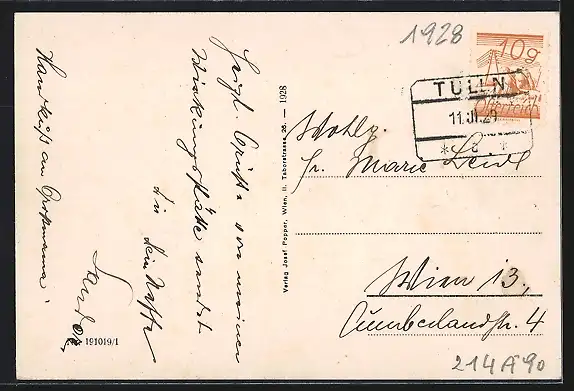 1928
10g
Österreich
TULLN
11.III.29
* a *
Wohlg.
Fr. Marie
Wien 13,
Cumberlandstr. 4
214A90
Verlag Josef Popper, Wien, II. Taborstrasse 26. — 1928
Herzl. Grüße von meiner
Wirkungsstätte sendet
Dir Dein Neffe
Handkuß an Großmama!
191019/1